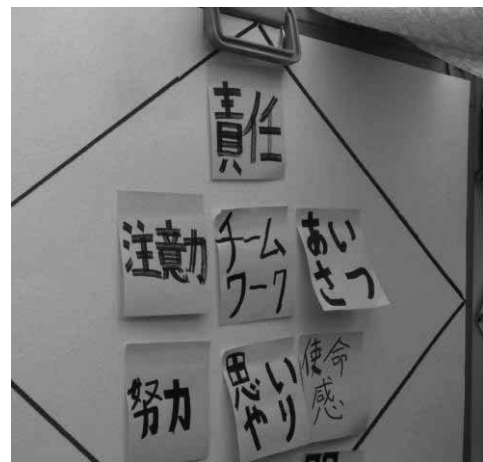 責任
注意力
チーム
ワーク
あい
さつ
努力
思い
やり
使命
感